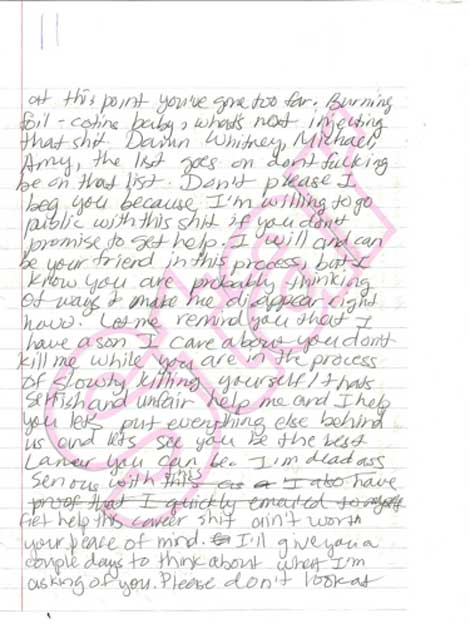 11
at this point you've gone too far. Burning
foil - cotine baby, what's next injecting
that shit. Damn Whitney, Michael,
Amy, the list goes on dont fucking
be on that list. Don't please I
beg you because I'm willing to go
public with this shit if you don't
promise to get help. I will and can
be your friend in this process, but I
know you are probably thinking
of ways to make me disappear right
now. Let me remind you that I
have a son I care about you don't
kill me while you are in the process
of slowly killing yourself! thats
selfish and unfair help me and I help
you lets put everything else behind
us and lets see you be the best
you can be. I'm dead ass
serious with this I also have
proof that I quickly emailed to myself
Get help this career shit ain't worth
your peace of mind. I'll give you a
couple days to think about what I'm
asking of you. Please don't look at
Star